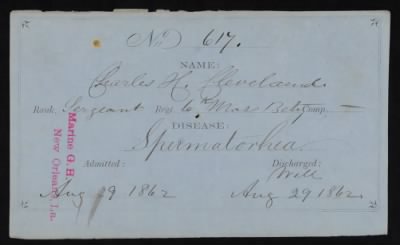 No 617.
NAME:
Charles H. Cleveland.
Rank, Sergeant Reg. 6th Mass Baty Comp. —
DISEASE:
Spermatorhea
Admitted: Discharged:
Aug 29 1862 Aug 29 1862
Marine G. H.
New Orleans, La.